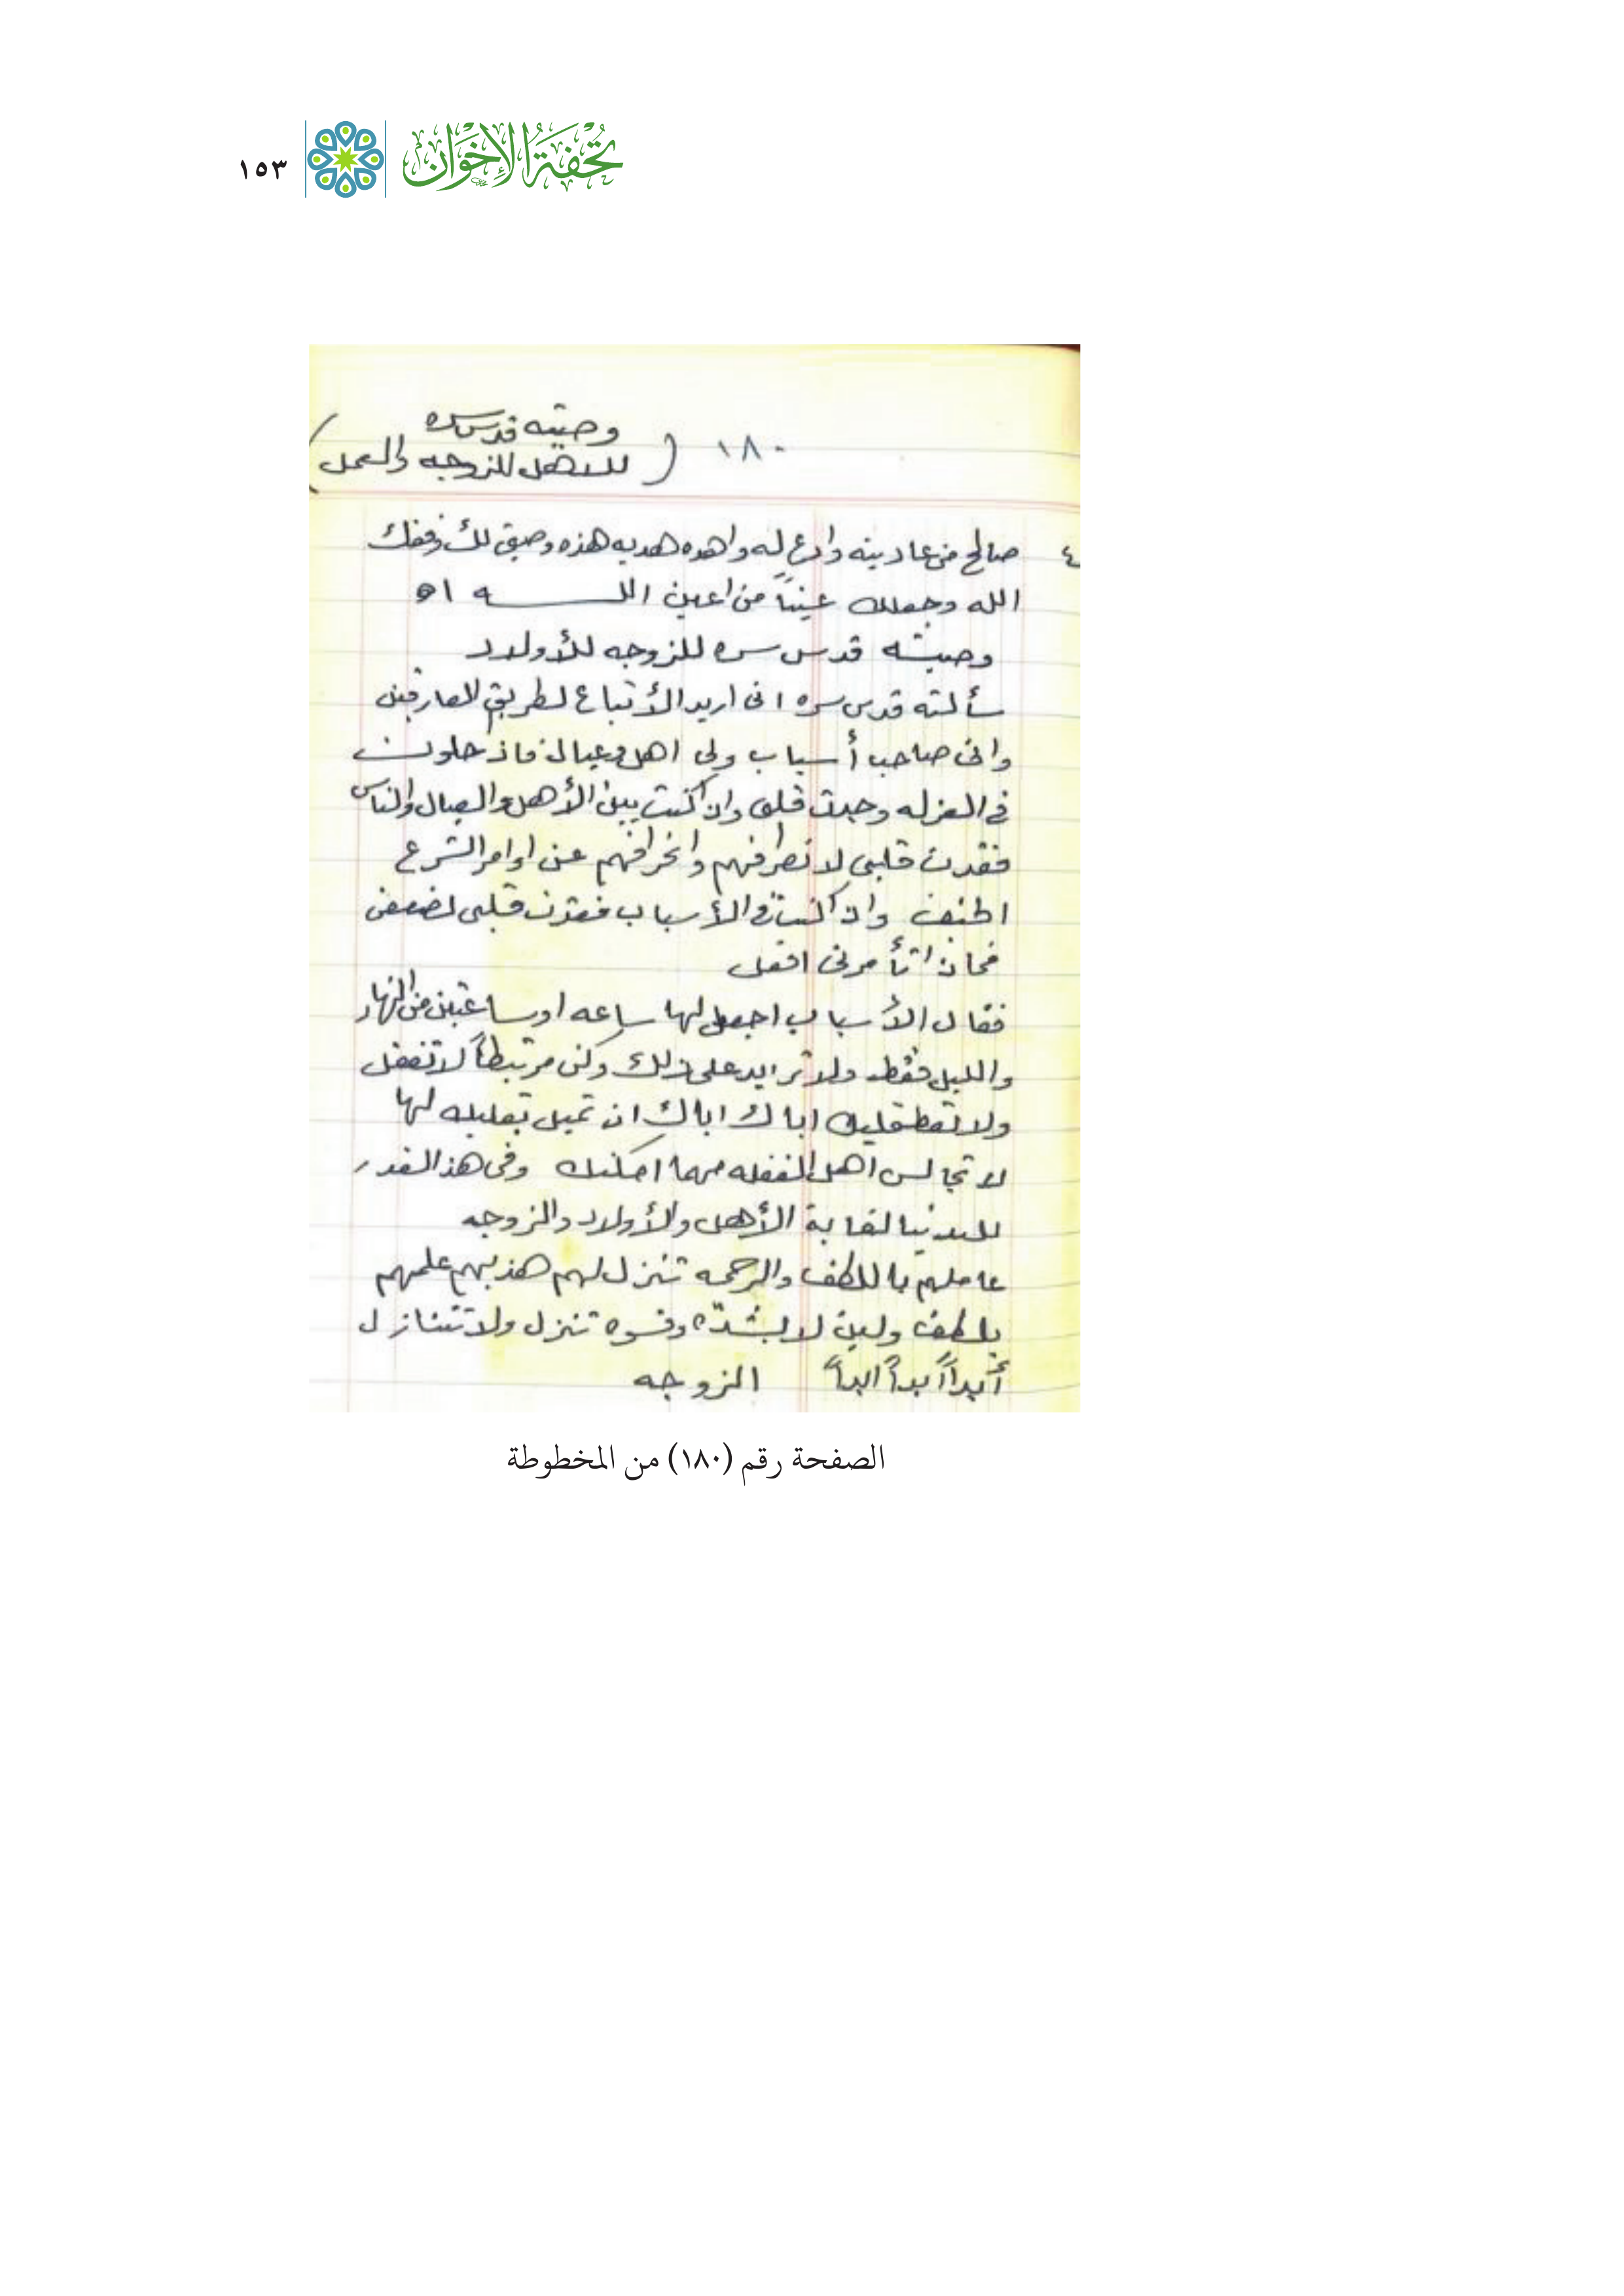 تُحْفَةُ الإِخْوَان ١٥٣
١٨٠ ( وصيته قدس سره
للأهل للزوجه والعمل )
صالح من عاد ينه وادع له واهده هديه هذه وصيتي لك وفقك
الله وجعلك عيناً من اعين اللـــــه اه
وصيته قدس سره للزوجه للأولاد
سألته قدس سره انى اريد الأتباع لطريق العارفين
وانى صاحب أسباب ولى اهل وعيال فاذ خلوت
في العزله وجدت قلبي واذ كنت بين الأهل والعيال والناس
فقدت قلبي لانصرافهم وانحرافهم عن اوامر الشرع
واذ كنت في الأسباب فقدت قلبى لضعفى
فماذا تأمرنى افعل
فقال الأسباب اجعل لها ساعه اوساعتين من النهار
والليل فقط ولا تزايد على ذلك وكن مرتبطاً لا تغفل
ولا تعط قلبك اياك اياك ان تميل بقلبك لها
لا تجالس اهل الغفله مهما امكنك وفى هذ القدر
للدنيا لغاية الأهل والأولاد والزوجه
عاملهم باللطف والرحمه تنزل لهم هذبهم علمهم
بلطف ولين لابشدّه وقسوه تنزل ولا تتنازل
أبداً أبداً ابداً الزوجه
الصفحة رقم (١٨٠) من المخطوطة